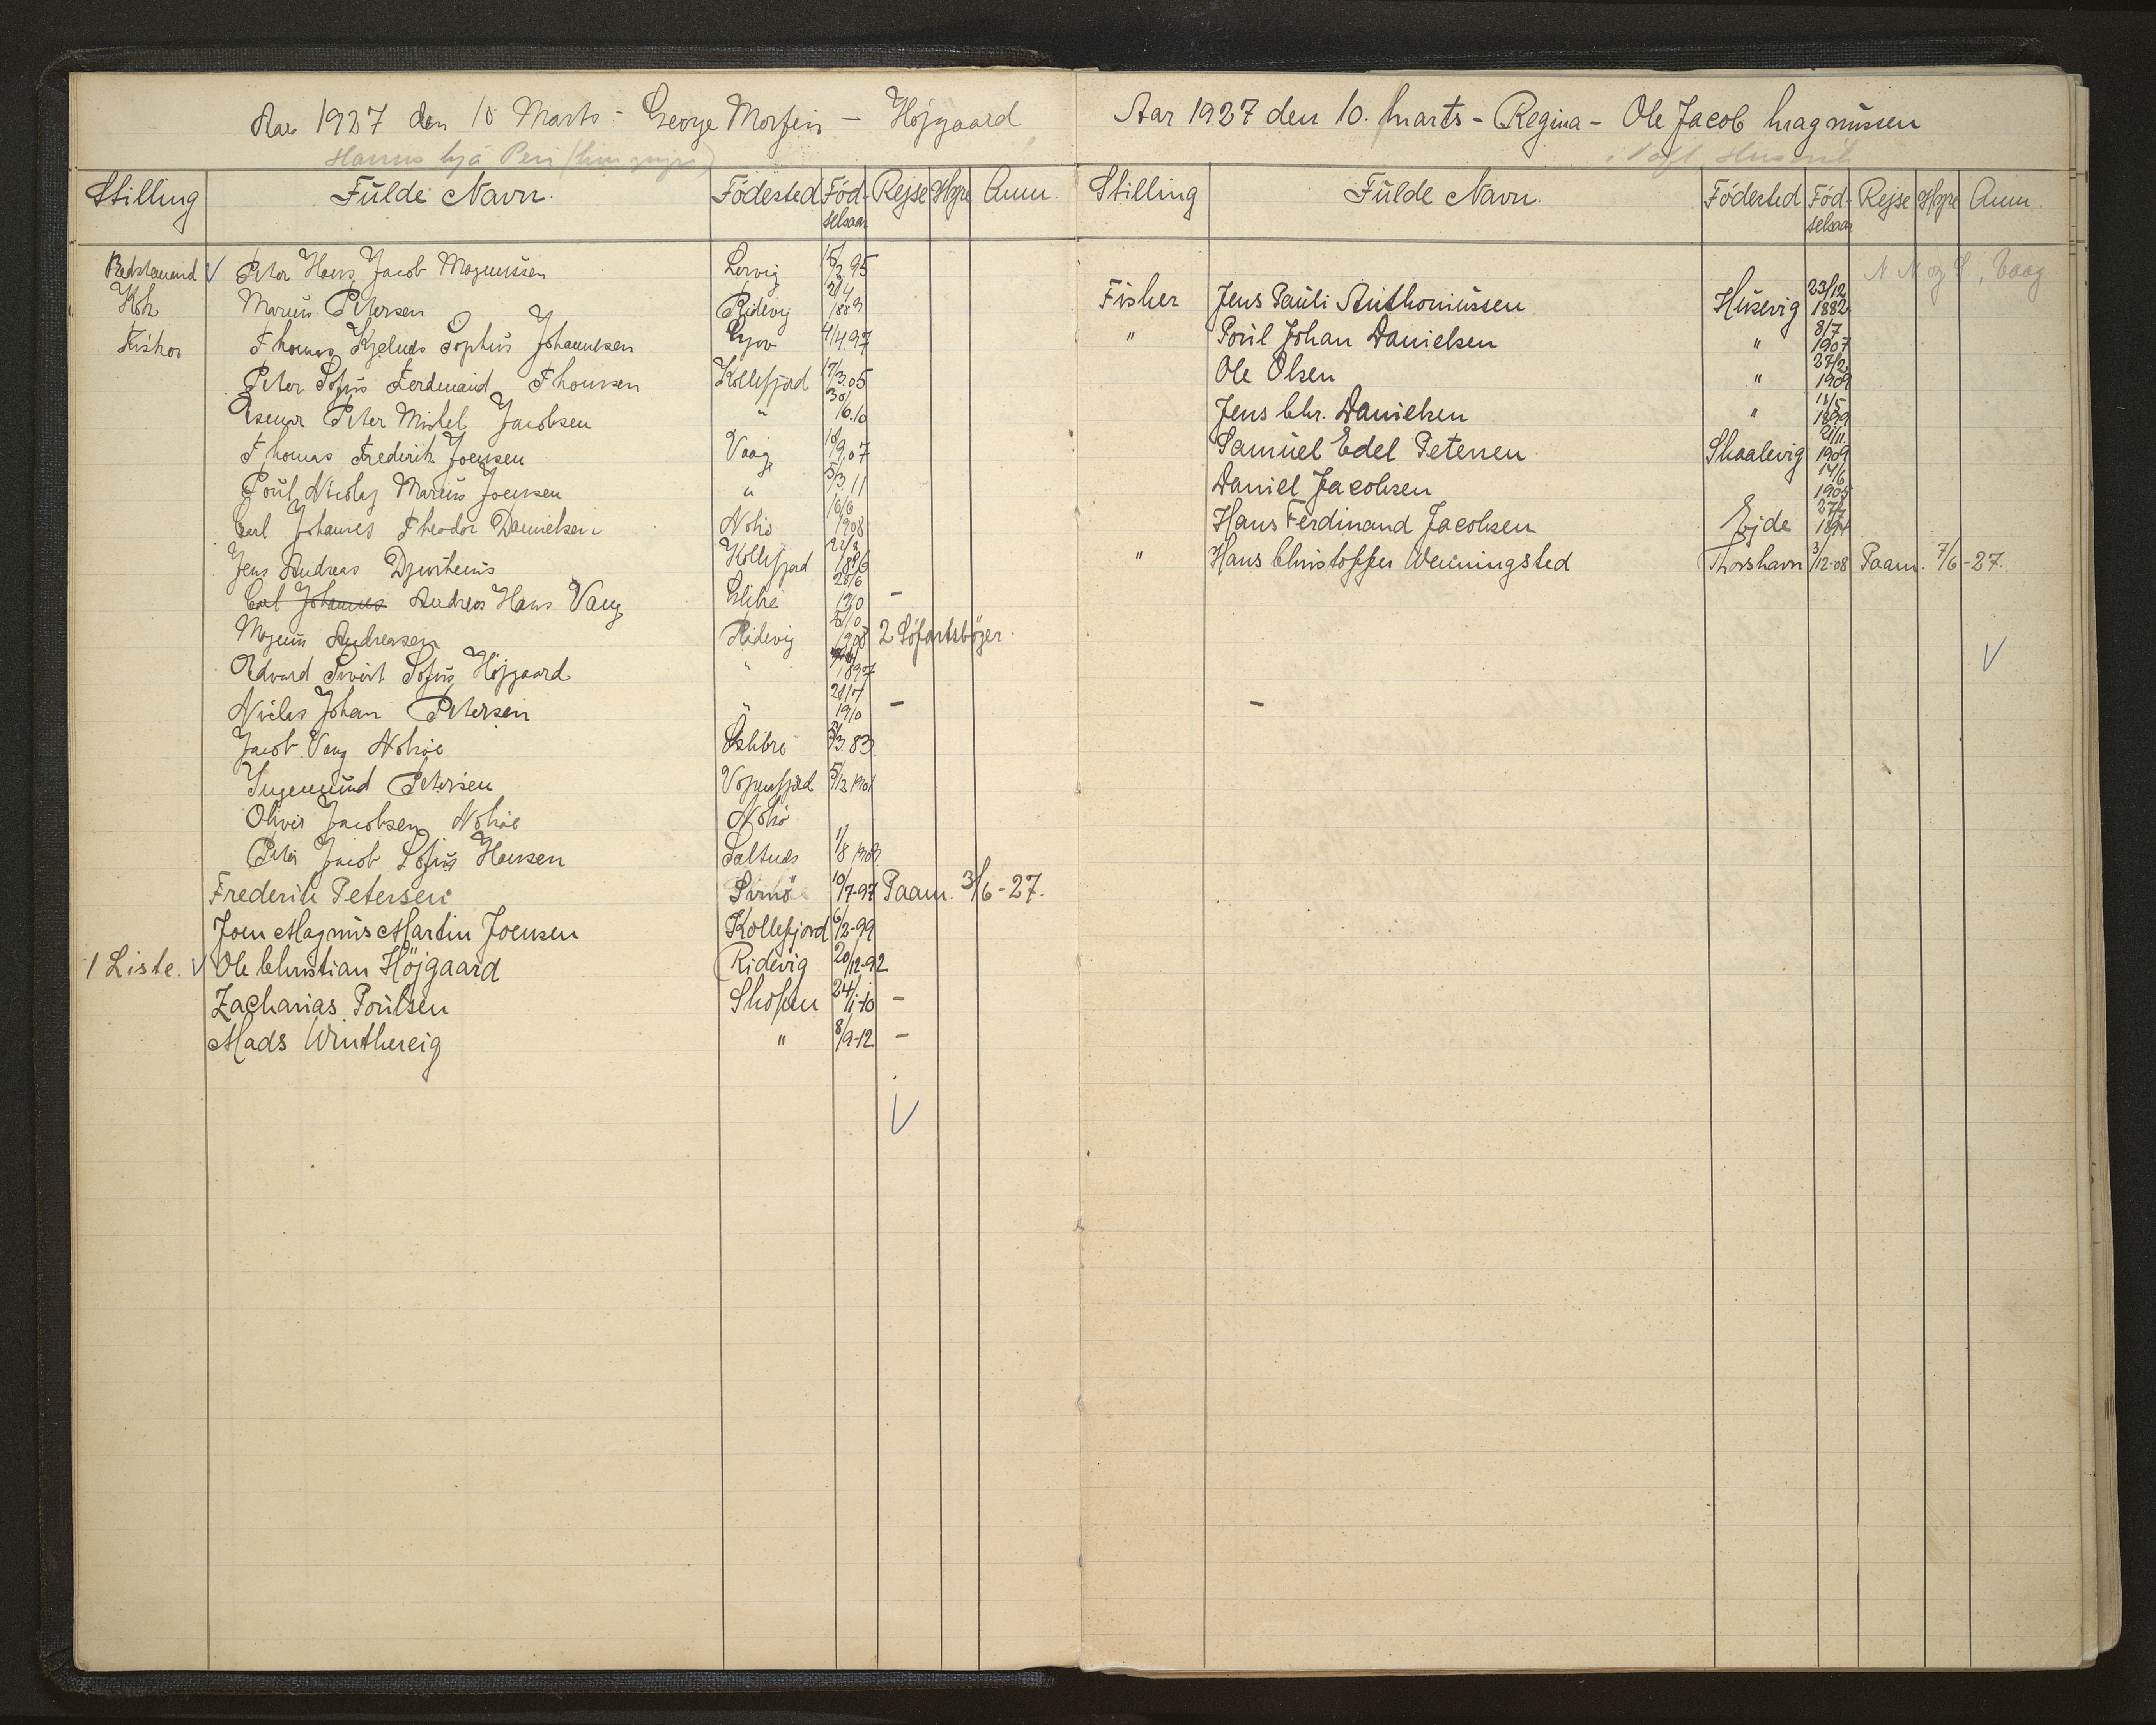 Aar 1927 den 10 Marts - George Morfin - Højgaard
Hanus hjá Peri
Stilling Fülde Navn. Fødested Fød-selsaar Rejse Hyre Anm.
Bedstemand Peter Hans Jacob Magnussen Lervig 95
Kok Marius Petersen Ridevig 1883
Fisker Thomas Kjelnæs Sophus Johannesen Gjov 4/4 97
Peter Sofus Ferdinand Thomsen Kollefjord 17/3.05
Peter Mikkel Jacobsen " 30/6.10
Thomas Frederik Joensen Vaag 10/9.07
Poul Nicolaj Marius Joensen " 5/3.11
Carl Johannes Theodor Danielsen Nolsö 16/6 1908
Jens Andreas Djurhuus Kollefjord 22/3 1886
Carl Johannes Andreas Hans Vang Glibre 25/6 1910 -
Magnus Andreasen Ridevig 5/10 1908 2 Söfartsböger.
Edvard Sivert Sofus Højgaard " 1897
Niclas Johan Petersen " 1910 -
Jacob Vang Nolsöe 83
Ingemund Petersen 5/12 1901
Oliver Jacobsen Nolsöe Nolsö
Peter Jacob Sofus Hansen Saltnes 1/8 1909
Frederik Petersen Svinö 10/7-97 Paam. 3/6-27.
Joen Magnus Martin Joensen Kollefjord 6/2-99
1 Liste. Ole Christian Höjgaard Ridevig 20/12-92
Zacharias Poulsen Skopen 24/11-10 -
Mads Winthereig " 8/9-12 -
Aar 1927 den 10. marts - Regina - Ole Jacob Magnussen
Stilling Fülde Navn. Fødested Fød-selsaar Rejse Hyre Anm.
N. N. og S, Vaag
Fisker Jens Pauli Anthoniussen Husevig 23/12 1882
" Poul Johan Danielsen " 8/7 1907
Ole Olsen " 27/2 1909
Jens Chr. Danielsen " 1899
Samuel Edel Petersen Skaalevig 21/11 1909
Daniel Jacobsen 14/6 1905
Hans Ferdinand Jacobsen Ejde 27/7 1894
" Hans Christoffer Wenningsted Thorshavn 3/12-08 Paam. 7/6-27.
-